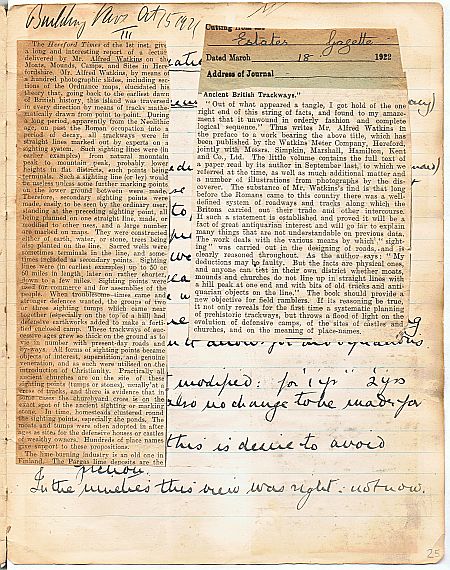 Building News Oct 7/5 1921
III
The Hereford Times of the 1st inst. give
a long and interesting report of a lectur
delivered by Mr. Alfred Watkins on the
Moats, Mounds, Camps, and Sites in Here
fordshire. Mr. Alfred Watkins, by means of
a hundred photographic slides, including sec
tions of the Ordnance maps, elucidated his
theory that, going back to the earliest dawn
of British history, this island was traversed
in every direction by means of tracks mathe-
matically drawn from point to point. During
a long period, apparently from the Neolithic
age, on past the Roman occupation into a
period of decay, all trackways were in
straight lines marked out by experts on a
sighting system. Such sighting lines were (in
earlier examples) from natural mountain
peak to mountain peak, probably lower
heights in flat districts, such points being
terminals. Such a sighting line (or ley) would
be useless unless some further marking points
on the lower ground between were made.
Therefore, secondary sighting points were
made, easily to be seen by the ordinary user
standing at the preceding sighting point, all
being planned on one straight line, made, or
modified to other uses, and a large number
are marked on maps. They were constructed
either of earth, water, or stone, trees being
also planted on the line. Sacred wells were
sometimes terminals in the line, and some-
times included as secondary points. Sighting
lines were (in earliest examples) up to 50 or
60 miles in length; later on rather shorter,
down to a few miles. Sighting points were
used for commerce and for assemblies of the
people. When troublesome times came and
stronger defence wanted, the groups of two
or three sighting tumps which came near
together (especially on the top of a hill) had
defensive earthworks added to make a forti-
fied enclosed camp. These trackways of suc-
cessive ages grew so thick on the ground as to
vie in number with present-day roads and
byways. All forms of sighting points became
objects of interest, superstition, and genuine
veneration, and as such were utilised on the
introduction of Christianity. Practically all
ancient churches are on the site of these
sighting points (tumps or stones), usually at a
cross of tracks, and there is evidence that in
some cases the churchyard cross is on the
exact spot of the ancient sighting or marking
stone. In time, homesteads clustered round
the sighting points, especially the ponds. The
moats and tumps were often adopted in after
ages as sites for the defensive houses or castles
of wealthy owners. Hundreds of place names
give support to these propositions.
The lime-burning industry is an old one in
Finland. The Pargas lime deposits are the
Cutting from the
Estates Gazette
Dated March 18 1922
Address of Journal
"Ancient British Trackways."
"Out of what appeared a tangle, I got hold of the one
right end of this string of facts, and found to my amaze-
ment that it unwound in orderly fashion and complete
logical sequence." Thus writes Mr. Alfred Watkins in
the preface to a work bearing the above title, which has
been published by the Watkins Meter Company, Hereford,
jointly with Messrs. Simpkin, Marshall, Hamilton, Kent
and Co., Ltd. The little volume contains the full text of
a paper read by its author in September last, to which we
referred at the time, as well as much additional matter and
a number of illustrations from photographs by the dis-
coverer. The substance of Mr. Watkins's find is that long
before the Romans came to this country there was a well-
defined system of roadways and tracks along which the
Britons carried out their trade and other intercourse.
If such a statement is established and proved it will be a
fact of great antiquarian interest and will go far to explain
many things that are not understandable on previous data.
The work deals with the various means by which "sight-
ing" was carried out in the designing of roads, and is
clearly reasoned throughout. As the author says: "My
deductions may be faulty. But the facts are physical ones,
and anyone can test in their own district whether moats,
mounds and churches do not line up in straight lines with
a hill peak at one end and with bits of old tracks and anti-
quarian objects on the line." The book should provide a
new objective for field ramblers. If its reasoning be true,
it not only reveals for the first time a systematic planning
of prehistoric trackway, but throws a flood of light on the
evolution of defensive camps, of the sites of castles and
churches, and on the meaning of place-names.
modified: for "ys" 2ys
also no change to be made for
this is desire to avoid
friction.
In the nineties this view was right: not now.
25